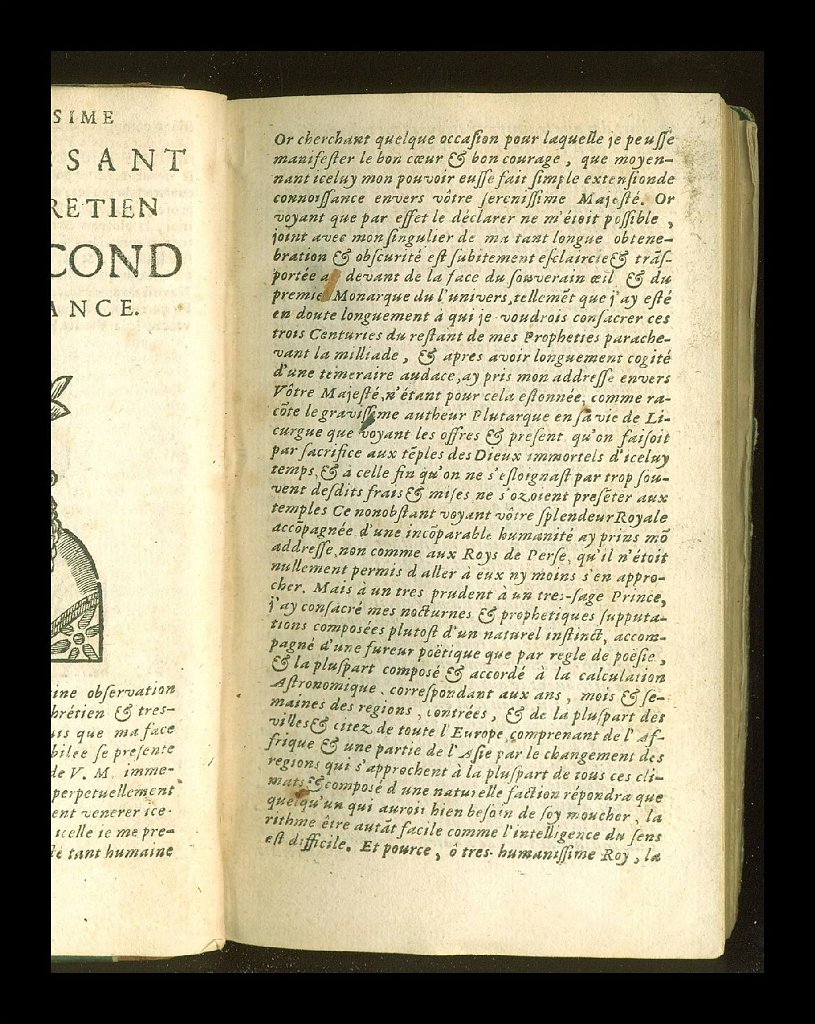 SIME
SSANT
RETIEN
COND
ANCE.
ine obſervation
hrétien & tres-
uis que ma face
bilée ſe preſente
de V. M. imme-
perpetuellement
ent venerer ice-
icelle ie me pre-
té tant humaine
Or cherchant quelque occaſion pour laquelle je peuſſe
manifeſter le bon cœur & bon courage, que moyen-
nant iceluy mon pouvoir euſſe fait ſimple extenſionde
connoiſſance envers vôtre ſereniſſime Majeſté. Or
voyant que par effet le déclarer ne m'étoit poſſible,
joint avec mon ſingulier de ma tant longue obtene-
bration & obſcurité eſt ſubitement eſclaircie & trãſ-
portée a devant de la face du ſouverain œil & du
premie Monarque du l'univers, tellemẽt que j'ay eſté
en doute longuement à qui je voudrois conſacrer ces
trois Centuries du reſtant de mes Propheties parache-
vant la milliade, & apres avoir longuement cogité
d'une temeraire audace, ay pris mon addreſſe envers
Vôtre Majeſté, n'étant pour cela eſtonnée, comme ra-
cõte le graviſſime autheur Plutarque en ſa vie de Li-
curgue que voyant les offres & preſent qu'on faiſoit
par ſacrifice aux tẽples des Dieux immortels d'iceluy
temps, & à celle fin qu'on ne s'eſloignaſt par trop ſou-
vent deſdits frais & miſes ne s'ozoient preſẽter aux
temples Ce nonobſtant voyant vôtre ſplendeur Royale
accõpagnée d'une incõparable humanité ay prins mõ
addreſſe, non comme aux Roys de Perſe, qu'il n'étoit
nullement permis d aller à eux ny moins s'en appro-
cher. Mais à un tres prudent à un tres-ſage Prince,
j'ay conſacré mes nocturnes & prophetiques ſupputa-
tions compoſées plutoſt d'un naturel inſtinct, accom-
pagné d'une fureur poëtique que par regle de poëſie,
& la pluſpart compoſé & accordé à la calculation
Aſtronomique, correſpondant aux ans, mois & ſe-
maines des regions, contrées, & de la pluſpart des
villes & citez de toute l'Europe, comprenant de l'Af-
frique & une partie de l'Aſie par le changement des
regions qui s'approchent à la pluſpart de tous ces cli-
mats & compoſé d une naturelle faction répondra que
quelqu'un qui auroit bien beſoin de ſoy moucher, la
rithme être autãt facile comme l'intelligence du ſens
eſt difficile. Et pource, ô tres-humaniſſime Roy, la